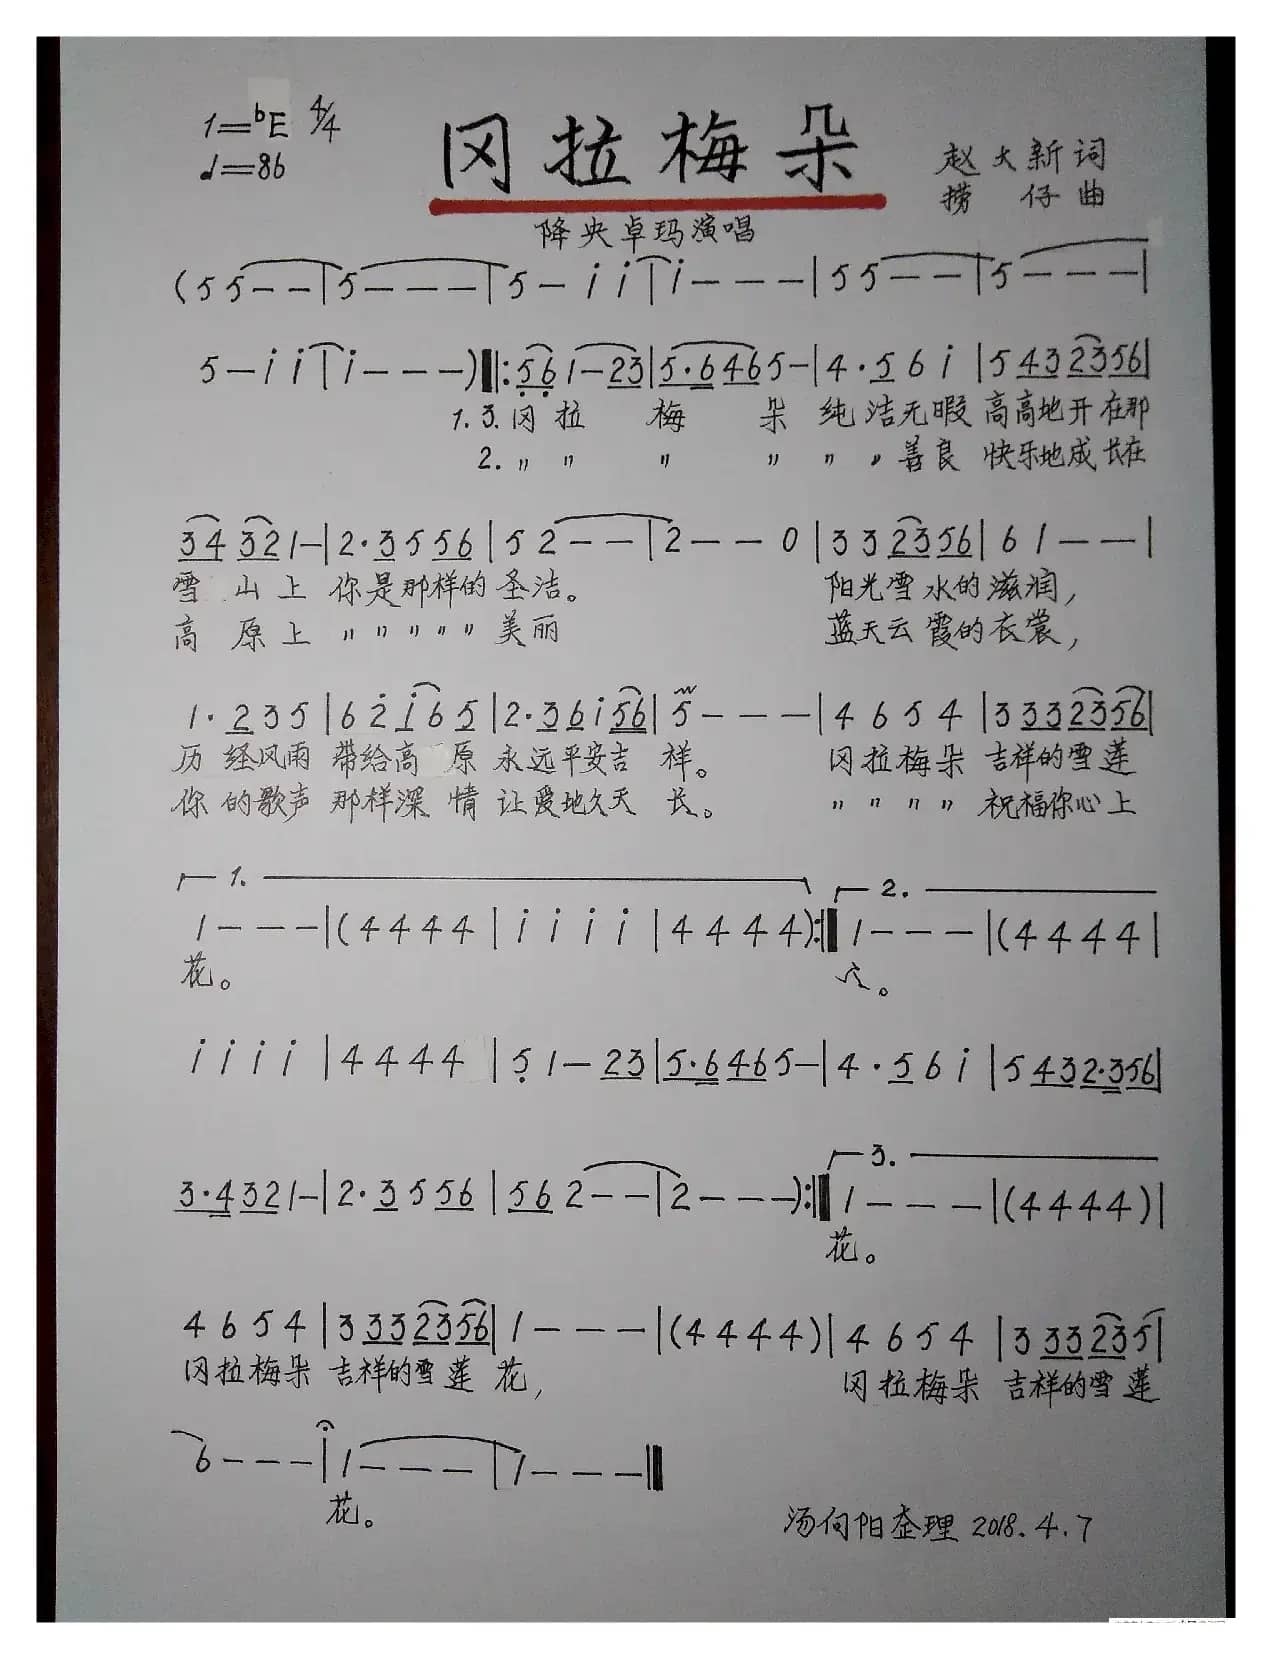 1=bE 4/4
♩=86
冈拉梅朵
赵大新词
捞仔曲
降央卓玛演唱
(5 5 - - | 5 - - - | 5 - i i | i - - - | 5 5 - - | 5 - - - |
5 - i i | i - - - ) ‖: 5 6 1 - 2 3 | 5 · 6 4 6 5 - | 4 · 5 6 i | 5 4 3 2 3 5 6 |
1.3. 冈拉 梅 朵 纯洁无暇 高高地开在那
2. 〃 〃 〃 〃 〃 〃 善良 快乐地成长在
3 4 3 2 1 - | 2 · 3 5 5 6 | 5 2 - - | 2 - - 0 | 3 3 2 3 5 6 | 6 1 - - |
雪山上 你是那样的圣洁。 阳光雪水的滋润,
高原上 〃 〃 〃 〃 〃 美丽 蓝天云霞的衣裳,
1 · 2 3 5 | 6 2 i 6 5 | 2 · 3 6 i 5 6 | 5 - - - | 4 6 5 4 | 3 3 3 2 3 5 6 |
历经风雨 带给高原 永远平安吉祥。 冈拉梅朵 吉祥的雪莲
你的歌声 那样深情 让爱地久天长。 〃 〃 〃 〃 祝福你心上
1. 2.
1 - - - | (4 4 4 4 | i i i i | 4 4 4 4) :‖ 1 - - - | (4 4 4 4 |
花。
i i i i | 4 4 4 4 | 5 1 - 2 3 | 5 · 6 4 6 5 - | 4 · 5 6 i | 5 4 3 2 · 3 5 6 |
3.
3 · 4 3 2 1 - | 2 · 3 5 5 6 | 5 6 2 - - | 2 - - - ) :‖ 1 - - - | (4 4 4 4) |
花。
4 6 5 4 | 3 3 3 2 3 5 6 | 1 - - - | (4 4 4 4) | 4 6 5 4 | 3 3 3 2 3 5 |
冈拉梅朵 吉祥的雪莲花, 冈拉梅朵 吉祥的雪莲
6 - - - | 1 - - - | 1 - - - ‖
花。
汤向阳查理 2018.4.7